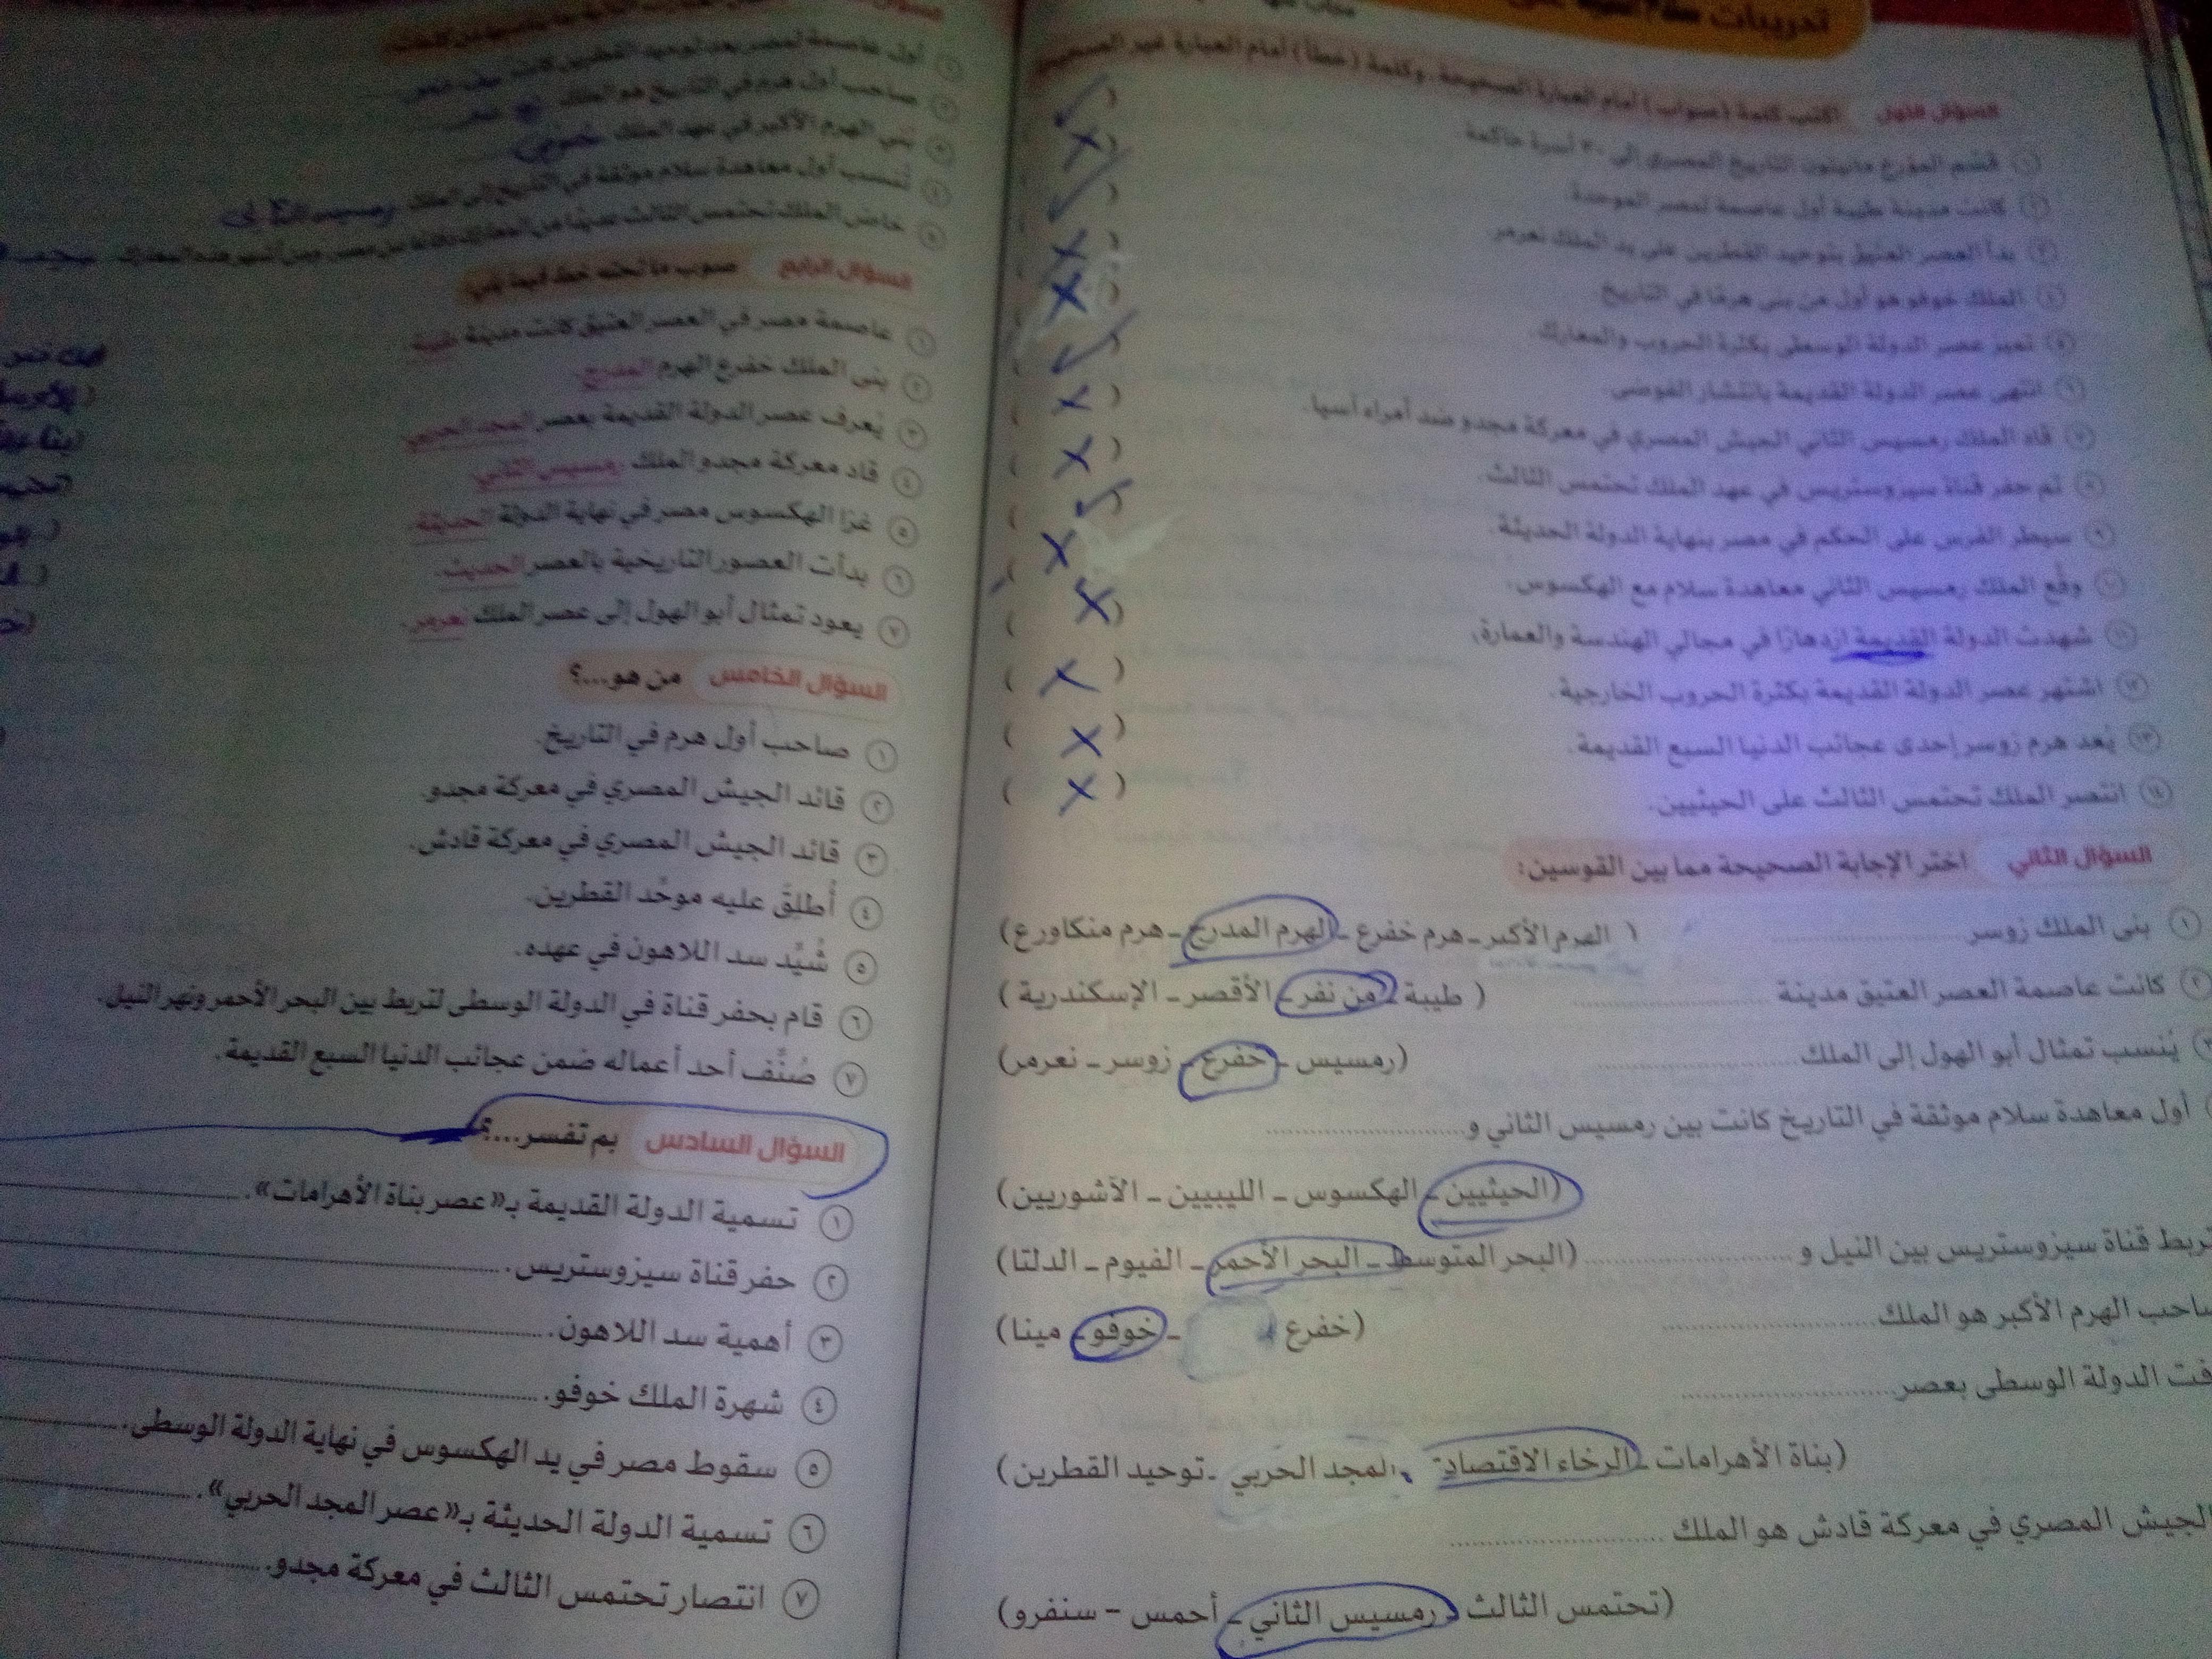 تدريبات
السؤال الأول اكتب كلمة (صواب) أمام العبارة الصحيحة، وكلمة (خطأ) أمام العبارة غير الصحيحة
١ قسم المؤرخ مانيتون التاريخ المصري إلى ٣٠ أسرة حاكمة.
٢ كانت مدينة طيبة أول عاصمة لمصر الموحدة.
٣ بدأ العصر العتيق بتوحيد القطرين على يد الملك نعرمر.
٤ الملك خوفو هو أول من بنى هرمًا في التاريخ.
٥ تميز عصر الدولة الوسطى بكثرة الحروب والمعارك.
٦ انتهى عصر الدولة القديمة بانتشار الفوضى.
٧ قاد الملك رمسيس الثاني الجيش المصري في معركة مجدو ضد أمراء آسيا.
٨ تم حفر قناة سيزوستريس في عهد الملك تحتمس الثالث.
٩ سيطر الفرس على الحكم في مصر بنهاية الدولة الحديثة.
١٠ وقع الملك رمسيس الثاني معاهدة سلام مع الهكسوس.
١١ شهدت الدولة القديمة ازدهارًا في مجالي الهندسة والعمارة.
١٢ اشتهر عصر الدولة القديمة بكثرة الحروب الخارجية.
١٣ يُعد هرم زوسر إحدى عجائب الدنيا السبع القديمة.
١٤ انتصر الملك تحتمس الثالث على الحيثيين.
السؤال الثاني اختر الإجابة الصحيحة مما بين القوسين:
١ بنى الملك زوسر ........ (الهرم الأكبر ـ هرم خفرع ـ الهرم المدرج ـ هرم منكاورع)
٢ كانت عاصمة العصر العتيق مدينة ........ (طيبة ـ من نفر ـ الأقصر ـ الإسكندرية)
يُنسب تمثال أبو الهول إلى الملك ........ (رمسيس ـ خفرع ـ زوسر ـ نعرمر)
أول معاهدة سلام موثقة في التاريخ كانت بين رمسيس الثاني و........
(الحيثيين ـ الهكسوس ـ الليبيين ـ الآشوريين)
تربط قناة سيزوستريس بين النيل و........ (البحر المتوسط ـ البحر الأحمر ـ الفيوم ـ الدلتا)
صاحب الهرم الأكبر هو الملك ........ (خفرع ـ خوفو ـ مينا)
الدولة الوسطى بعصر ........
(بناة الأهرامات ـ الرخاء الاقتصاد ـ المجد الحربي ـ توحيد القطرين)
الجيش المصري في معركة قادش هو الملك ........
(تحتمس الثالث ـ رمسيس الثاني ـ أحمس – سنفرو)
١ أول عاصمة لمصر بعد توحيد القطرين كانت
٢ صاحب أول هرم في التاريخ هو الملك
٣ بُني الهرم الأكبر في عهد الملك خوفو
٤ تُنسب أول معاهدة سلام موثقة في التاريخ إلى الملك رمسيس الثاني
٥ خاض الملك تحتمس الثالث عديدًا من المعارك
السؤال الرابع صوب ما تحته خط فيما يلي:
١ عاصمة مصر في العصر العتيق كانت مدينة طيبة.
٢ بنى الملك خفرع الهرم المدرج.
٣ يُعرف عصر الدولة القديمة بعصر المجد الحربي.
٤ قاد معركة مجدو الملك رمسيس الثاني.
٥ غزا الهكسوس مصر في نهاية الدولة الحديثة.
٦ بدأت العصور التاريخية بالعصر الحديث.
٧ يعود تمثال أبو الهول إلى عصر الملك نعرمر.
السؤال الخامس من هو...؟
١ صاحب أول هرم في التاريخ.
٢ قائد الجيش المصري في معركة مجدو.
٣ قائد الجيش المصري في معركة قادش.
٤ أُطلق عليه موحّد القطرين.
٥ شُيّد سد اللاهون في عهده.
٦ قام بحفر قناة في الدولة الوسطى لتربط بين البحر الأحمر ونهر النيل.
٧ صُنّف أحد أعماله ضمن عجائب الدنيا السبع القديمة.
السؤال السادس بم تفسر...؟
١ تسمية الدولة القديمة بـ«عصر بناة الأهرامات».
٢ حفر قناة سيزوستريس.
٣ أهمية سد اللاهون.
٤ شهرة الملك خوفو.
٥ سقوط مصر في يد الهكسوس في نهاية الدولة الوسطى.
٦ تسمية الدولة الحديثة بـ«عصر المجد الحربي».
٧ انتصار تحتمس الثالث في معركة مجدو.